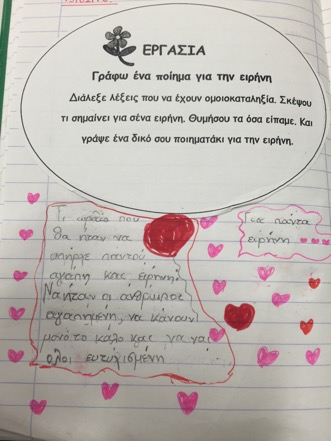 ΕΡΓΑΣΙΑ
Γράφω ένα ποίημα για την ειρήνη
Διάλεξε λέξεις που να έχουν ομοιοκαταληξία. Σκέψου
τι σημαίνει για σένα ειρήνη. Θυμήσου τα όσα είπαμε. Και
γράψε ένα δικό σου ποιηματάκι για την ειρήνη.
Τι ωραίο που
θα ήταν να
υπήρχε παντού
αγάπη και ειρήνη.
Να ήταν οι άθρωποι
αγαπημένη, να κάνουν
μονό το καλό και να ναι
όλοι ευτυχισμένη
πάντα
ειρήνη